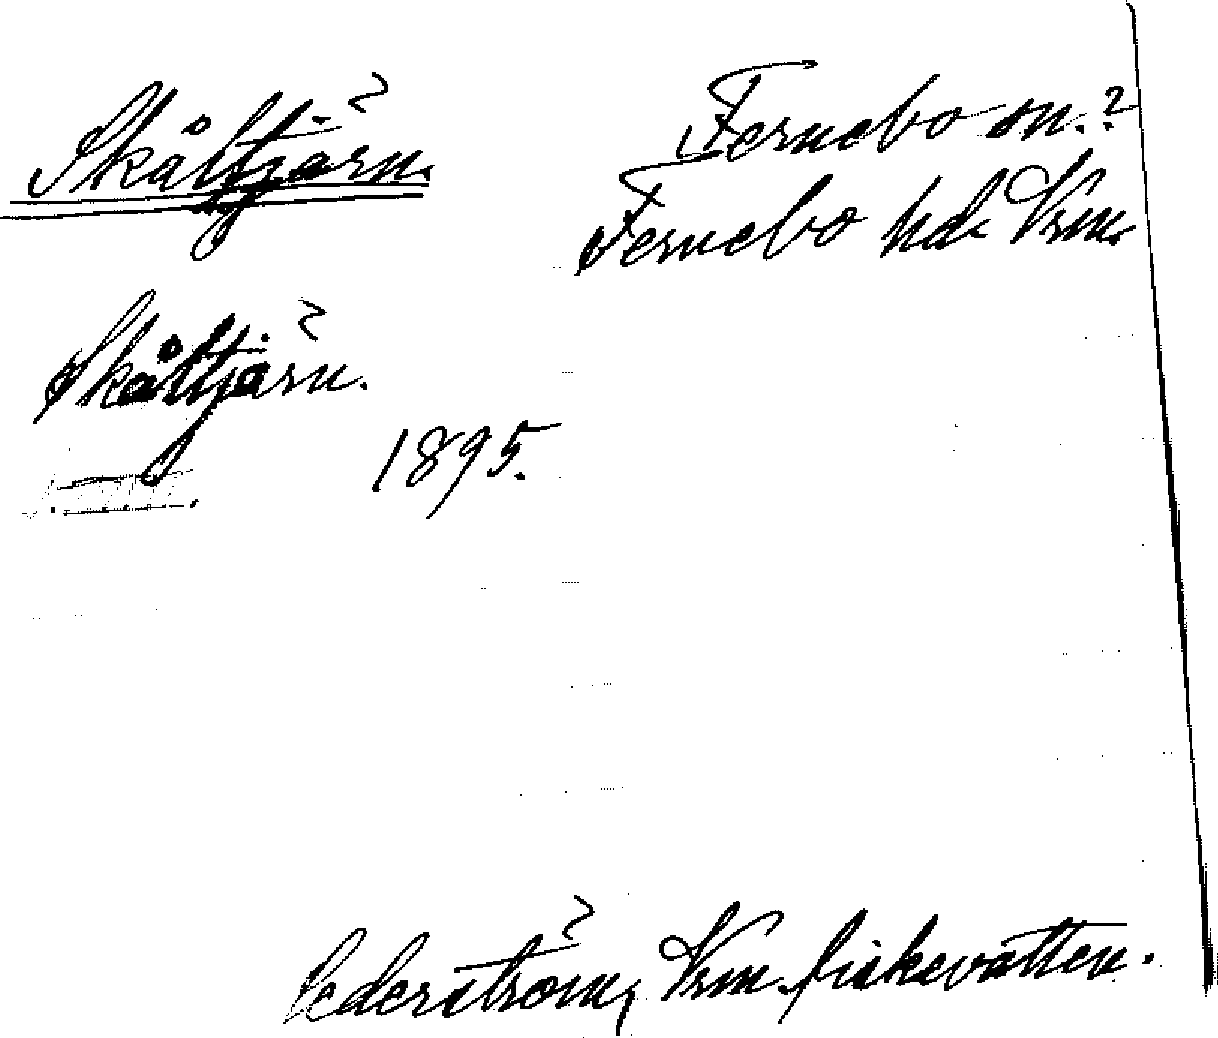 Skåltjärn.
Fernebo sn.?
Fernebo hd. Vrm.
Skåltjärn.
1895.
Cederström, Vrm. fiskevatten.